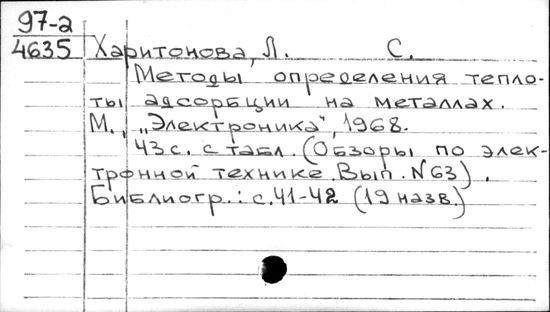 97-2
4635 Харитонова, Л. С.
Методы определения тепло-
ты адсорбции на металлах.
М., „Электроника", 1968.
43 с. с табл. (Обзоры по элек-
тронной технике. Вып. N63).
Библиогр.: с. 41-42 (19 назв.)